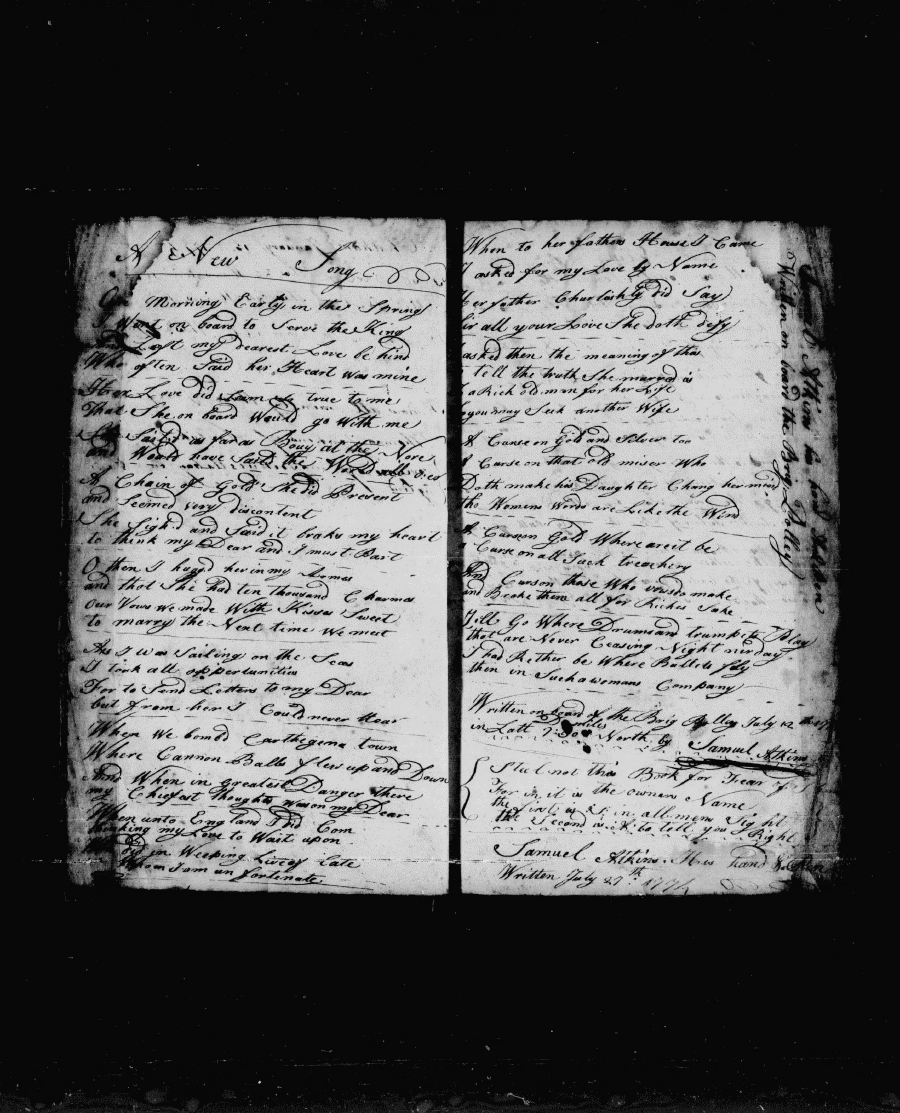 A New Song
Morning Early in the Spring
I Went on board to Serve the King
Left my dearest Love be hind
Who often Said her Heart was mine
Love did true to me
That She on board Would go With me
Sail'd as far as Bouy at the Nore
and Would have Said the World
A Chain of Gold She did Present
and Seemed very discontent
She Sigh'd and Said it broke my heart
to think my Dear and I must Part
O then I hugd her in my Armes
and thot She had ten thousand Charmes
our Vows we made With Kisses Sweet
to marry the Next time We meet
As I was Sailing on the Seas
I took all opportunities
For to Send Letters to my Dear
but from her I Could never Hear
When We bombd Carthegena town
Where Cannon Balls flew up and Down
And When in greatest Danger there
my Chiefest thoughts was on my Dear
When unto England I had Com
thinking my Love to Wait upon
in Weeping Late
am unfortunate
When to her fathers House I Came
I asked for my Love by Name
Her father Churlishly did Say
Sir all your Love She doth defy
asked then the meaning of this
tell the truth She married is
a Rich old man for her Life
you may Seek another Wife
A Curse on Gold and Silver too
A Curse on that old miser Who
Doth make his Daughter Chang her mind
tho Womens Words are Like the Wind
A Curse on Gold Where are it be
a Curse on all Such treachery
And Curs on those Who vows do make
and Broke them all for Riches Sake
I'll Go Where Drums and trumpets Play
that are Never Ceasing Night nir day
I had Rether be Where Bullets fly
then in Such a womans Company
Written on board of the Brig Polley July 12
in Latt North by Samuel Atkins
Steal not this Book for Fear of
For in it is the owners Name
the first is S in all mens Sight
the Second is A to tell you Right
Samuel Atkins His hand
Written July 29th 1774
Samuel Atkins his hand
Written on board the Brig Polley